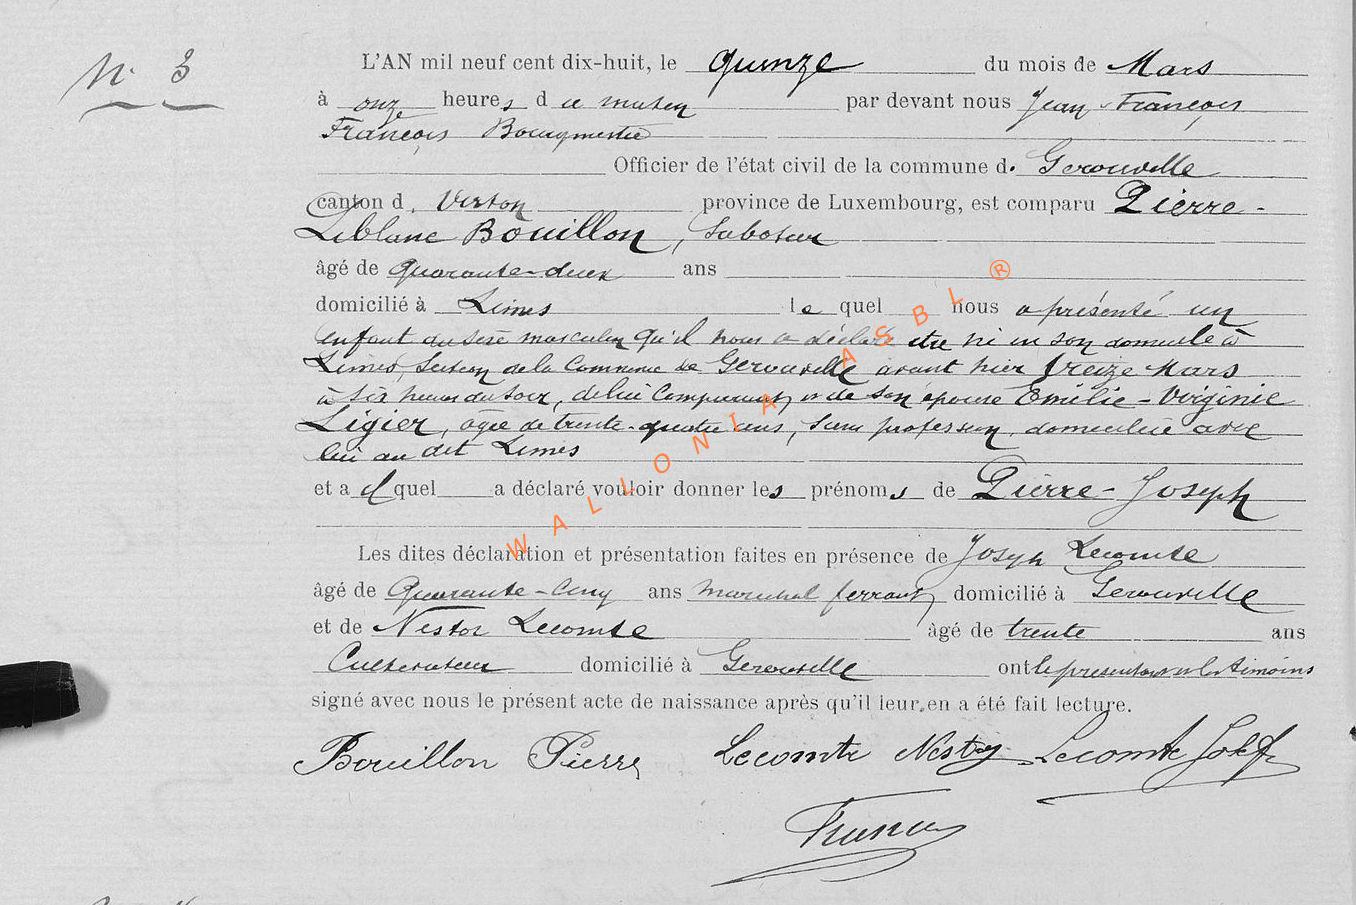 N° 3
L'AN mil neuf cent dix-huit, le quinze du mois de Mars
à onze heures d u matin par devant nous Jean-François
François Bourgmestre
Officier de l'état civil de la commune d. Gerouville
canton d. Virton province de Luxembourg, est comparu Pierre-
Leblanc Bouillon, Sabotier
âgé de quarante-deux ans
domicilié à Limes le quel nous a présenté un
enfant du sexe masculin qu'il nous a déclaré être né en son domicile à
Limes, Section de la Commune de Gerouville avant hier treize Mars
à six heures du soir, de lui Comparant, et de son épouse Emélie-Virginie
Ligier, âgée de trente-quatre ans, sans profession, domiciliée avec
lui au dit Limes
et a quel a déclaré vouloir donner les prénoms de Pierre-Joseph
Les dites déclaration et présentation faites en présence de Joseph Lecomte
âgé de Quarante-Cinq ans maréchal ferrant, domicilié à Gerouville
et de Nestor Lecomte âgé de trente ans
Cultivateur domicilié à Gerouville ont le présentant et les témoins
signé avec nous le présent acte de naissance après qu'il leur en a été fait lecture.
Bouillon Pierre Lecomte Nestor Lecomte Joseph
François
WALLONIA ASBL ®